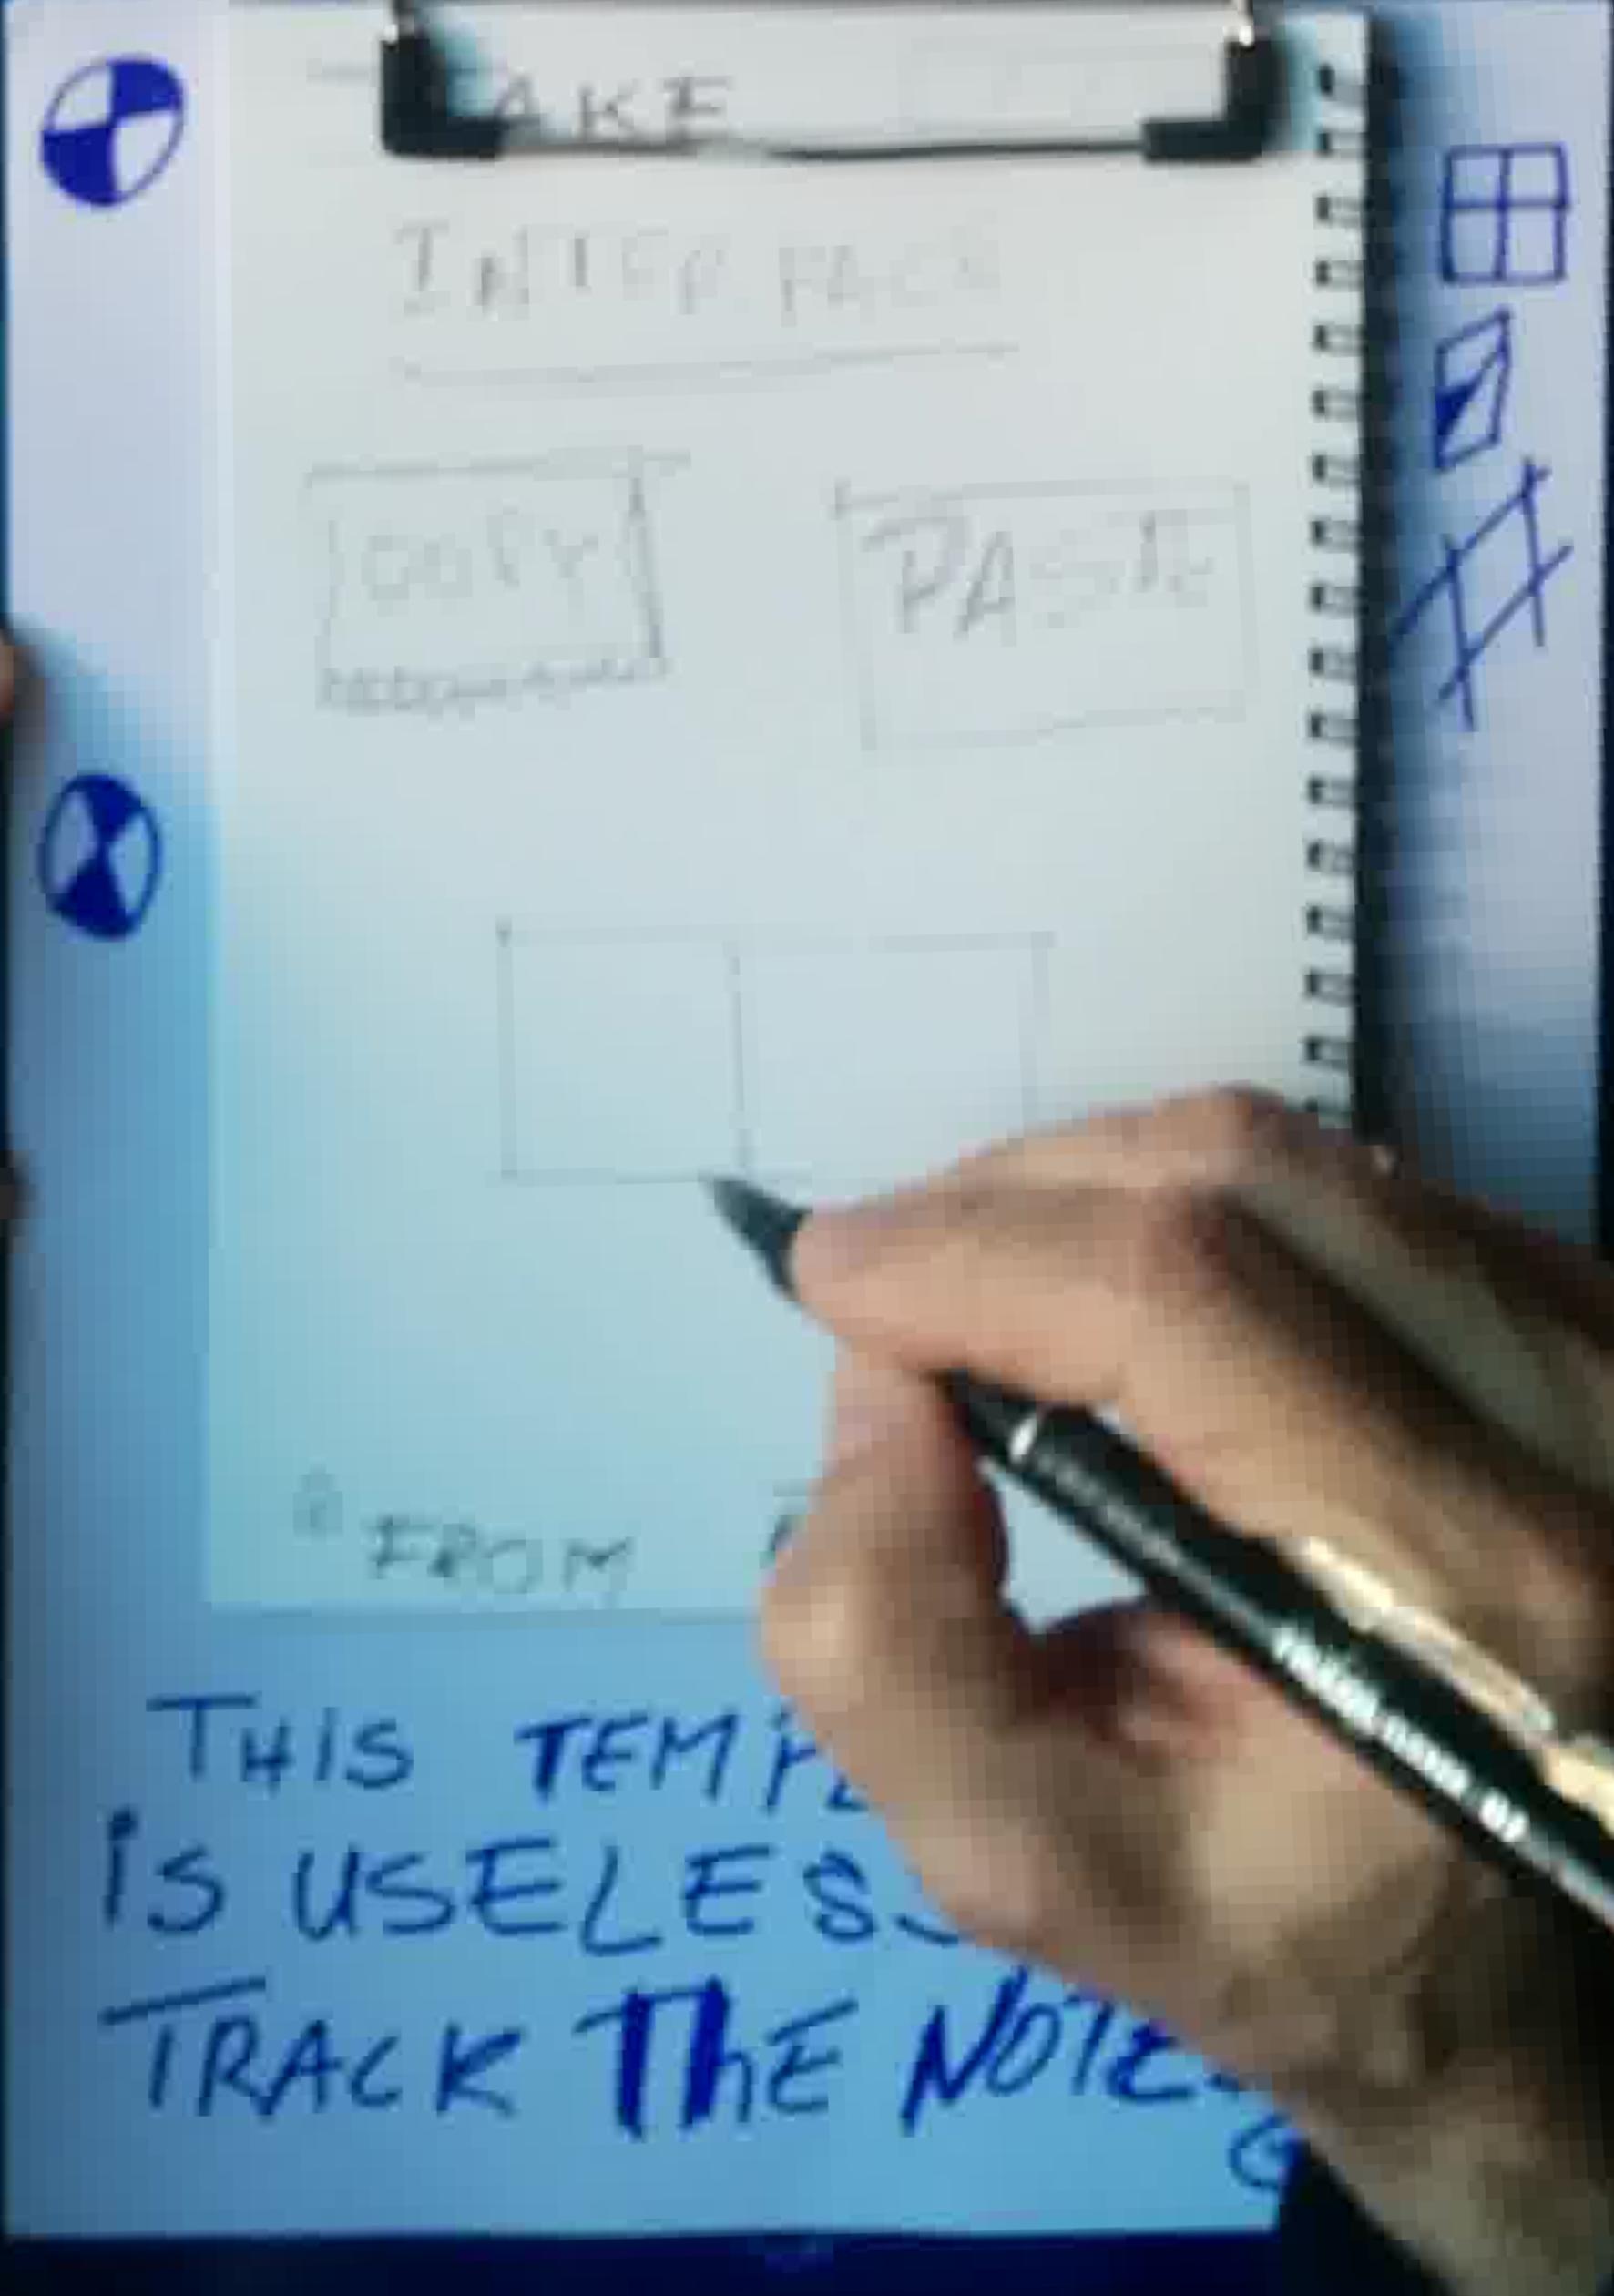 AKE
INTERFACE
COPY PASTE
FROM
THIS TEMPL
iS USELESS
TRACK THE NOTES